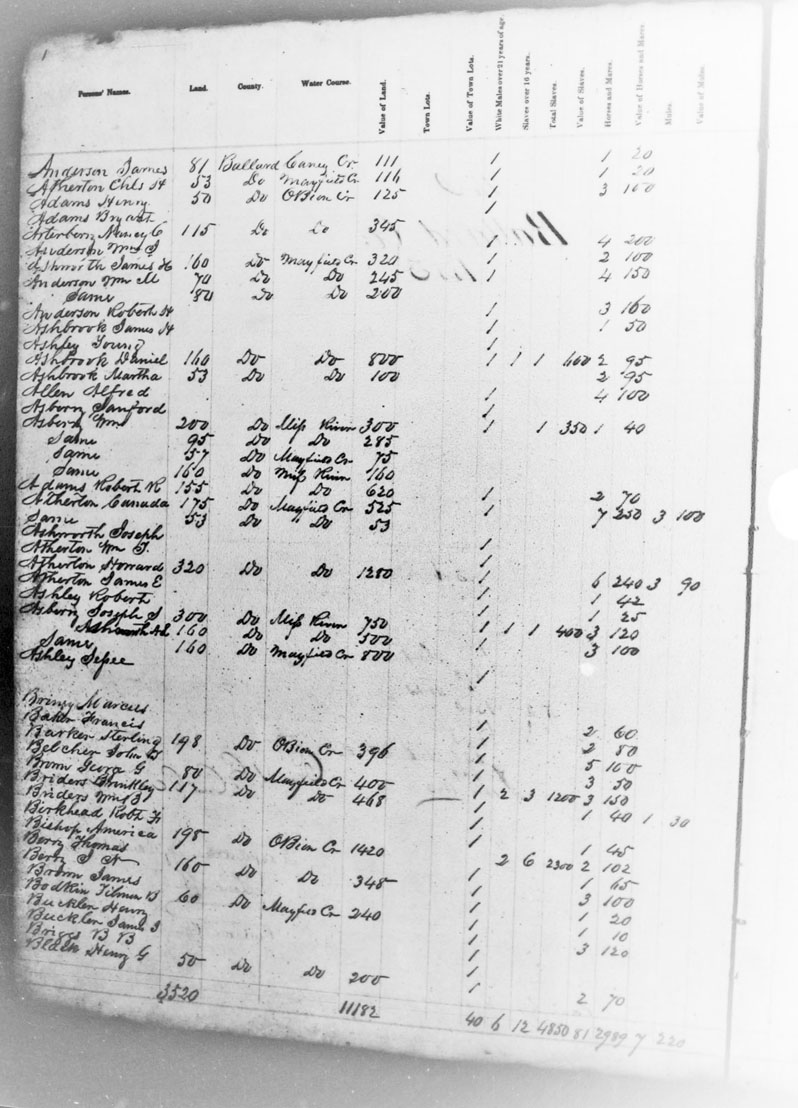 1
Persons' Names. Land. County. Water Course. Value of Land. Town Lots. Value of Town Lots. White Males over 21 years of age. Slaves over 16 years. Total Slaves. Value of Slaves. Horses and Mares. Value of Horses and Mares. Mules. Value of Mules.
Anderson James 81 Ballard Caney Cr. 111 / 1 20
Atherton Chls H 53 Do Mayfield Cr 116 / 1 20
Adams Henry 50 Do OBion Cr 125 / 3 100
Adams Bryant /
Arterbery Nancy C 115 Do Do 345
Anderson Wm J / 4 200
Ashworth James H 160 Do Mayfield Cr 320 / 2 100
Anderson Wm M 70 Do Do 245 / 4 150
Same 80 Do Do 200
Anderson Robert H / 3 160
Ashbrook James H / 1 50
Ashley Young /
Ashbrook Daniel 160 Do Do 800 / 1 1 400 2 95
Ashbrook Martha 53 Do Do 100 2 95
Allen Alfred / 4 100
Asberry Sanford /
Asberry Wm 200 Do Miss River 300 / 1 350 1 40
Same 95 Do Do 285
Same 57 Do Mayfield Cr 75
Same 160 Do Miss River 160
Adams Robert R 155 Do Do 620 / 2 70
Atherton Canada 175 Do Mayfield Cr 525 / 7 250 3 100
Same 53 Do Do 53
Ashworth Joseph /
Atherton Wm T. /
Atherton Howard 320 Do Do 1280 / 6 240 3 90
Atherton James E / 1 42
Ashley Robert / 1 25
Asberry Joseph J 300 Do Miss River 750 / 1 1 400 3 120
Ashworth 160 Do Do 500 / 3 100
Same 160 Do Mayfield Cr 800
Ashley Jesse /
Marcus /
Baker Francis / 2 60
Barker Sterling 198 Do OBion Cr 396 / 2 80
Belcher John / 5 160
Brown Geora G 80 Do Mayfield Cr 400 / 3 50
Briders Brinkley 117 Do Do 468 / 2 3 1200 3 150
Briders Wm / 1 40 1 30
Birkhead Robt /
Bishop America 198 Do OBion Cr 1420 1 45
Berry Thomas 2 6 2300 2 102
Berry J N 160 Do Do 348 / 1 65
Brown James / 3 100
Bodkin Tilman B 60 Do Mayfield Cr 240 / 1 20
Buckler Henry / 1 10
Buckler James J / 3 120
Briggs B B /
Black Henry G 50 Do Do 200 / 2 70
3520 11182 40 6 12 4850 81 2989 7 220